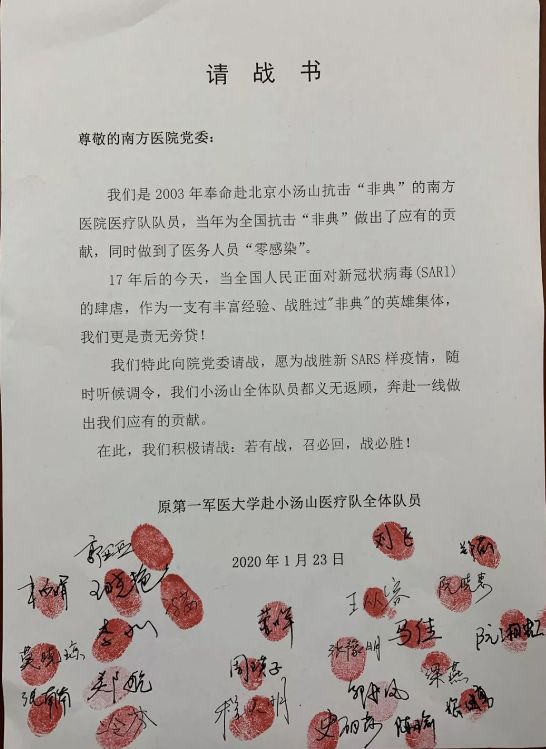 请战书
尊敬的南方医院党委：
我们是2003年奉命赴北京小汤山抗击“非典”的南方
医院医疗队队员，当年为全国抗击“非典”做出了应有的贡
献，同时做到了医务人员“零感染”。
17年后的今天，当全国人民正面对新冠状病毒(SARI)
的肆虐，作为一支有丰富经验、战胜过"非典"的英雄集体，
我们更是责无旁贷！
我们特此向院党委请战，愿为战胜新SARS样疫情，随
时听候调令，我们小汤山全体队员都义无返顾，奔赴一线做
出我们应有的贡献。
在此，我们积极请战：若有战，召必回，战必胜！
原第一军医大学赴小汤山医疗队全体队员
2020年1月23日
刘飞
马佳
梁燕